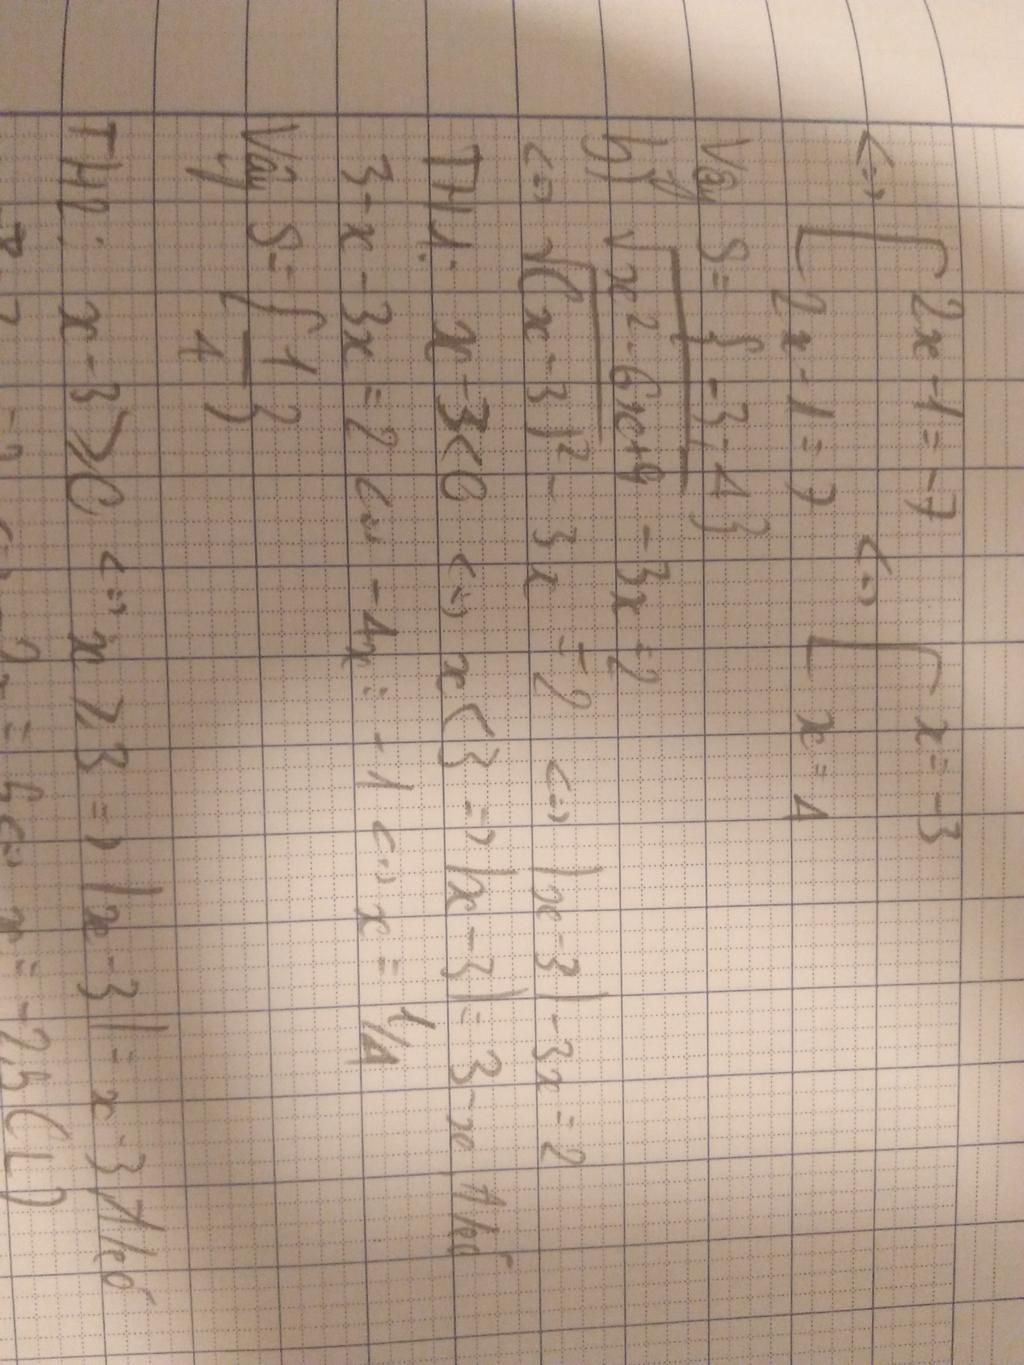 <=> [ 2x-1=-7 <=> [ x=-3
2x-1=7 x=4
Vậy S={-3;4}
b) √x²-6x+9 -3x=2
<=> √(x-3)² -3x =2 <=> |x-3|-3x=2
TH1: x-3<0 <=> x<3 => |x-3|=3-x, ta có
3-x-3x=2 <=> -4x=-1 <=> x=1/4
Vậy S={1/4}
TH2: x-3≥0 <=> x≥3 => |x-3|=x-3, ta có
x-3-3x=2 <=> -2x=5 <=> x=-2,5(L)